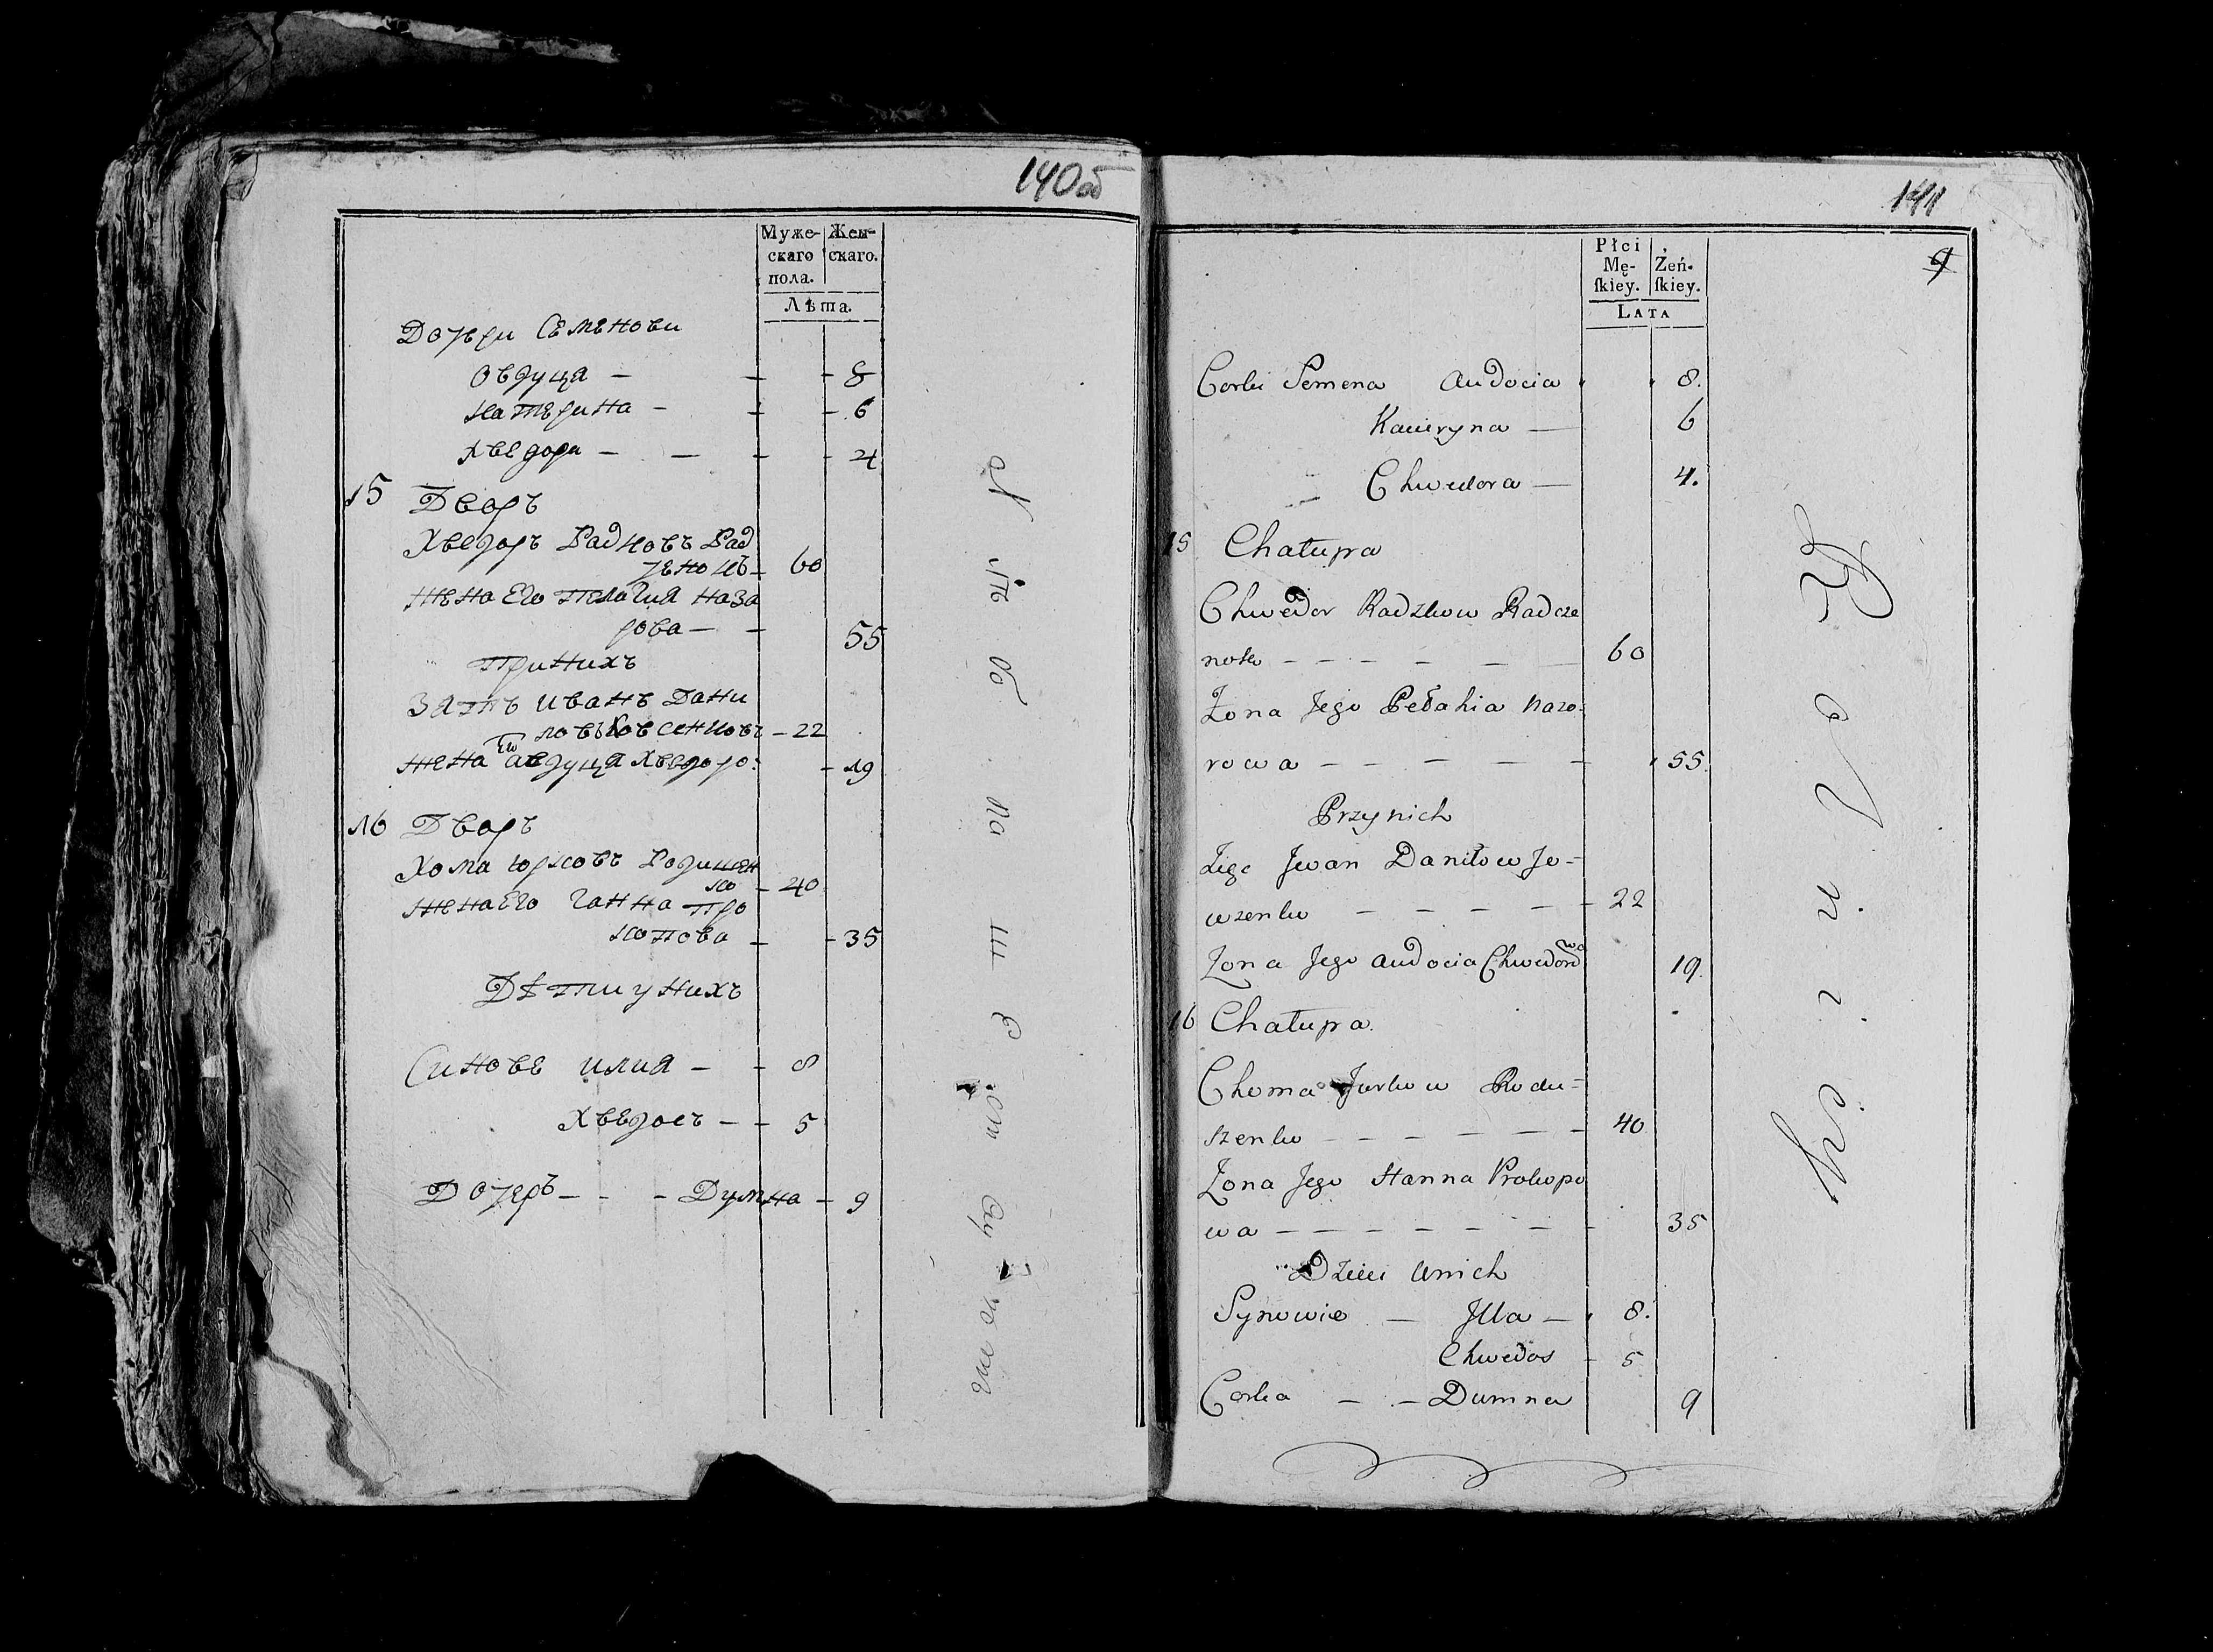 140об
Муже-
скаго
пола.
Жен-
скаго.
Лѣта.
Дочери Семенови
Овдуця - - - 8
Катерина - - - 6
Хведора - - - - 4
15 Дворъ
Хведоръ Радковъ Рад
ченокъ - 60
Жена его Пелагия Наза
рова - - 55
При нихъ
Зять Иванъ Дани
ловъ Іовсенковъ - 22
Жена его Авдуця Хведоро: - 19
16 Дворъ
Хома Юрковъ Родишен
ко - 40
Жена его Ганна Про
копова - - 35
Дѣти у нихъ
Синове Илия - - 8
Хведосъ - - 5
Дочеръ - - - Думна - 9
141
9
Płci
Mę-
ſkiey.
Żeń-
ſkiey.
LATA
Corki Semena Audocia 8.
Kateryna — 6
Chwedora — 4.
15 Chałupa
Chwedor Radzkow Radcze
nok - - - - - - 60
Żona Jego Pełahia Nazo:
rowa - - - - - 55.
Przynich
Zięc Jwan Daniłow Jo-
wzenko - - - - - 22
Żona Jego Audocia Chwedorowa 19.
16 Chałupa.
Choma Jurkow Rodu=
szenko - - - - - - 40
Żona Jego Hanna Prokopo
wa - - - - - - - 35
Dzieci Unich
Synowie — Jlla — 8.
Chwedos - 5
Corka — — Dumna 9